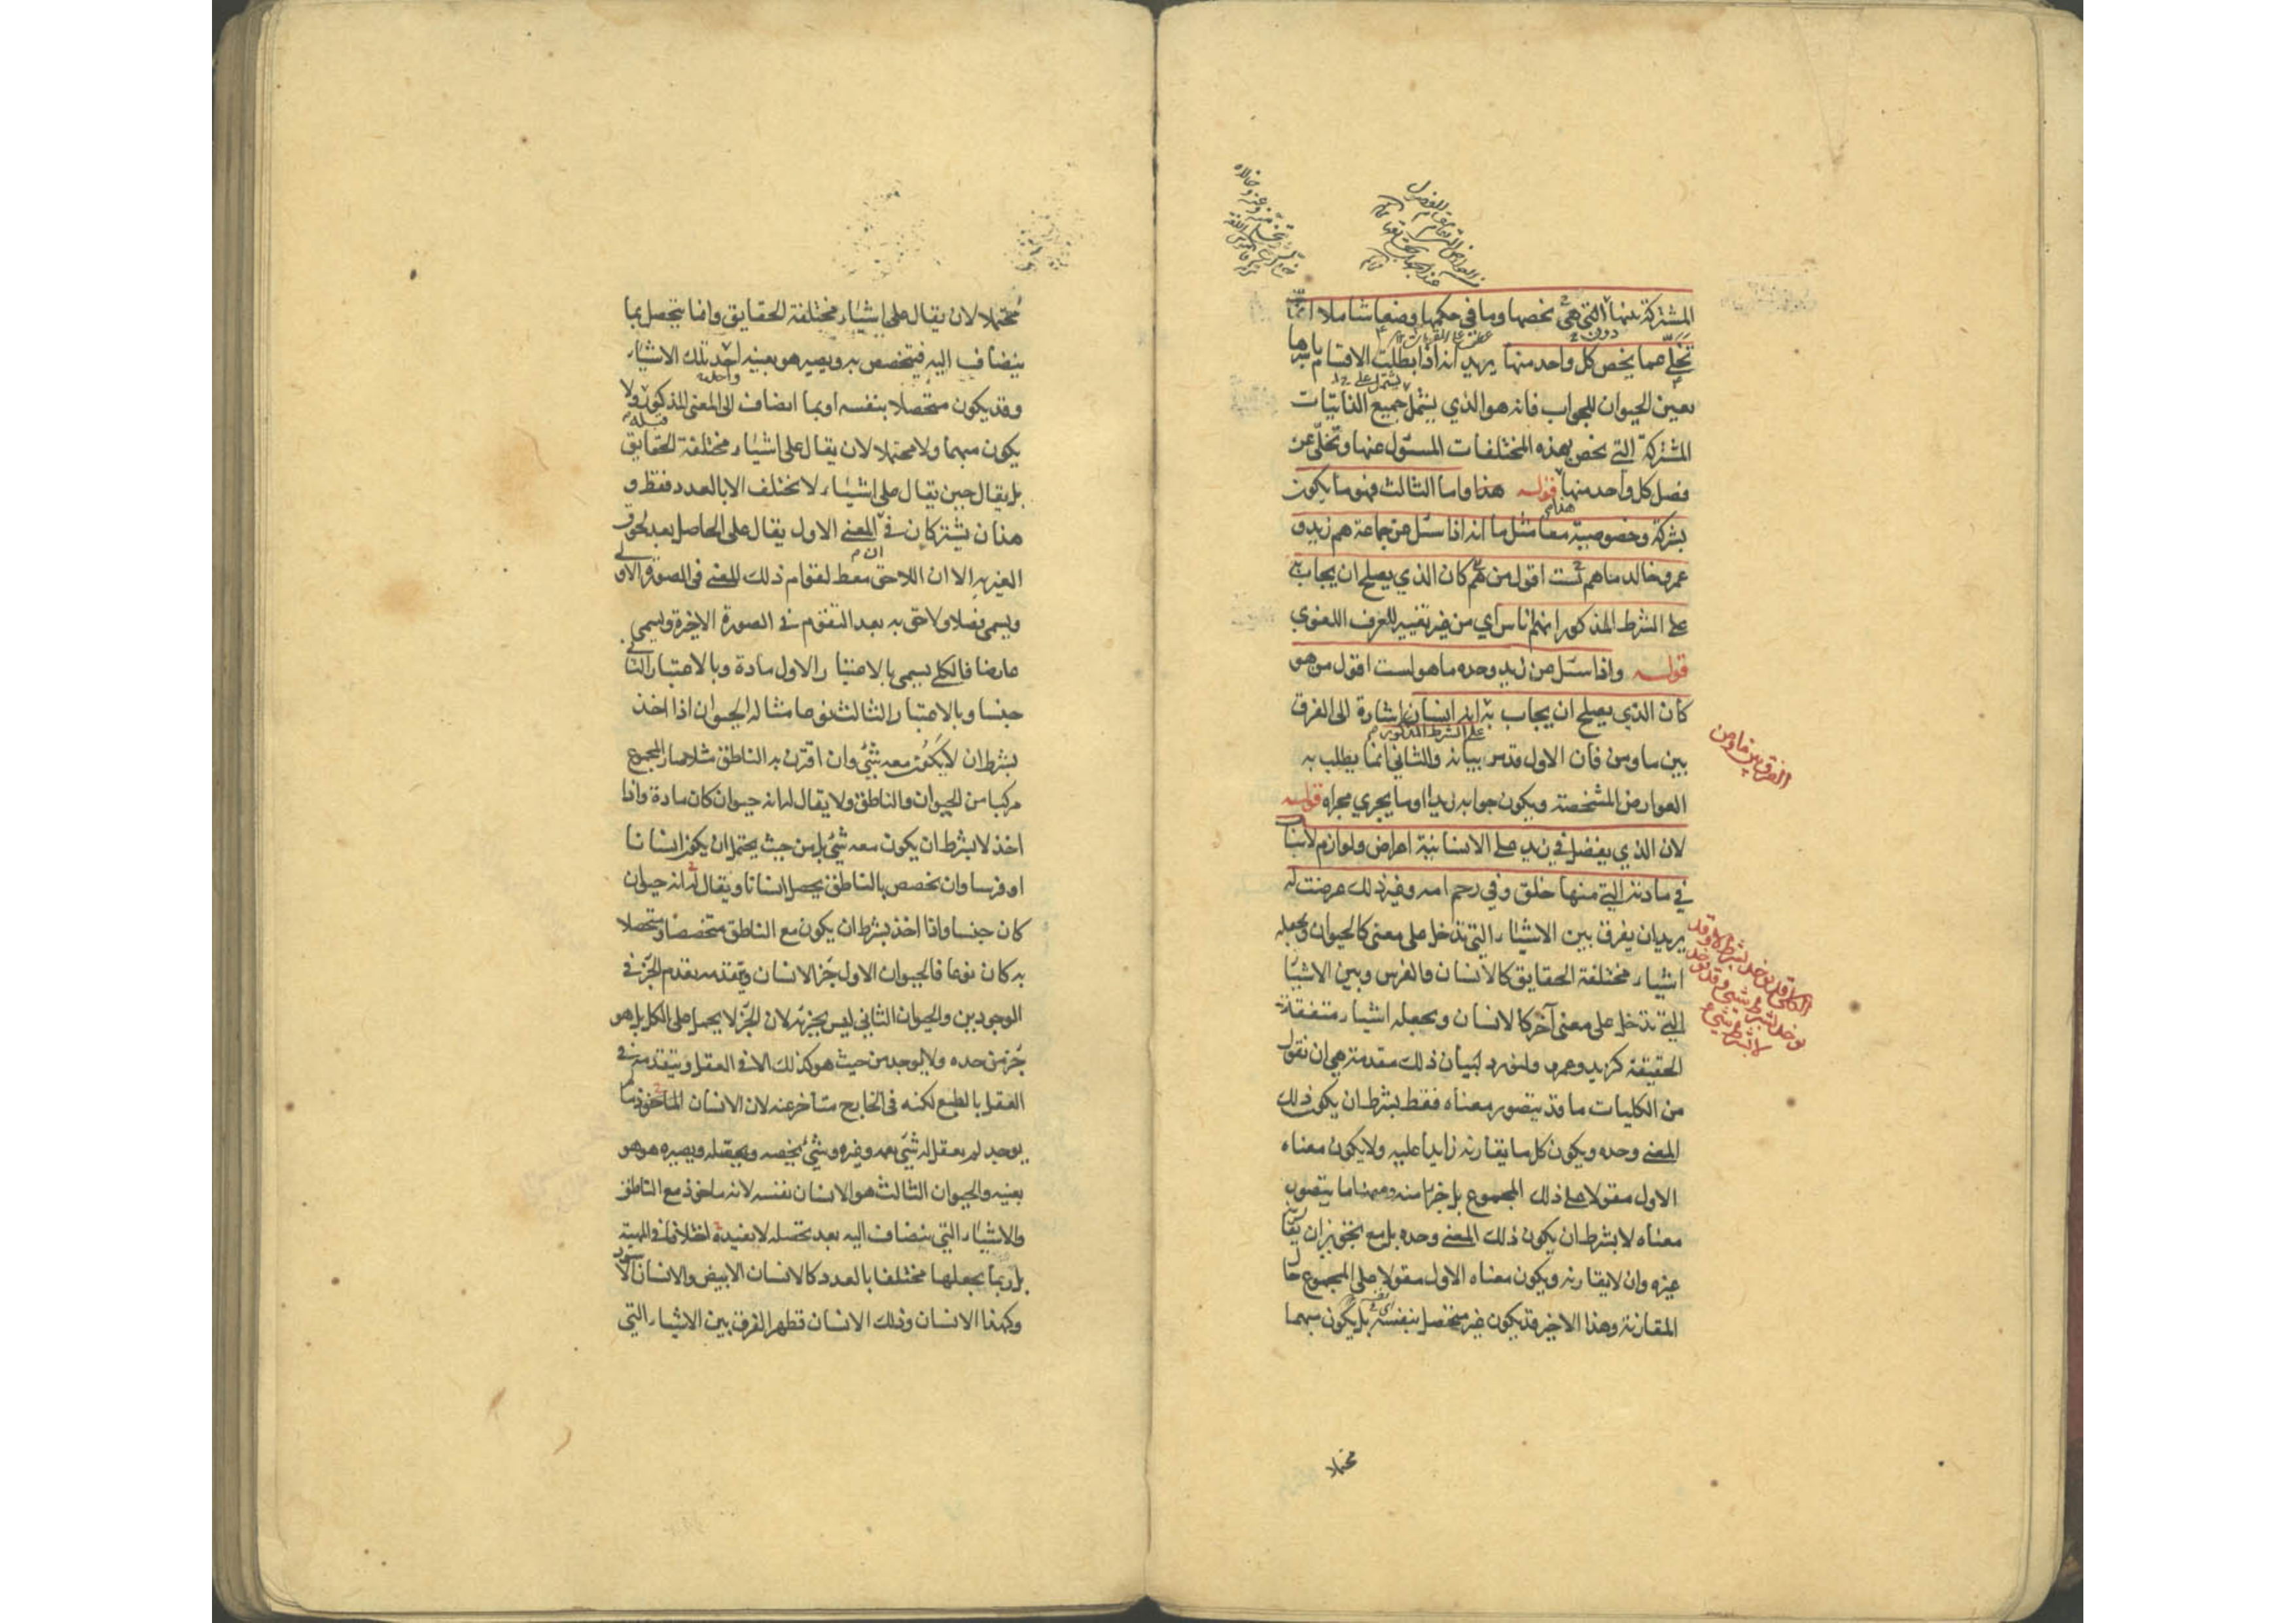 المشتركة بينها التي هي تخصها وما في حكمها وضعا شاملا انما
دون
تخلّي عما يخص كل واحد منها يريد انه اذا بطلت الاقسام باسرها
يشتمل على
تعين الحيوان للجواب فانه هو الذي يشمل جميع الذاتيات
المشتركة التي تخص بهذه المختلفات المسئول عنها وتخلّي عن
فصل كل واحد منها قوله هذا واما الثالث فهو ما يكون
بشركة وخصوصية معا مثل ما انه اذا سئل عن جماعة هم زيد و
عمرو خالد ما هم لست اقول من هم كان الذي يصلح ان يجاب به
على الشرط المذكور انهم اناس اي من غير تغيير للعرف اللغوي
قوله واذا سئل عن زيد وحده ما هو لست اقول من هو
كان الذي يصلح ان يجاب به انه انسان اشارة الى الفرق
على الشرط المذكور
بين ما ومن فان الاول قد مر بيانه والثاني انما يطلب به
العوارض المشخصة ويكون جوابه زيدا وما يجري مجراه قوله
لان الذي يفضل في زيد على الانسانية اعراض ولوازم لاسباب
في مادته التي منها خلق وفي رحم امه وغير ذلك عرضت له
يريد ان يفرق بين الاشياء التي تدخل على معنى كالحيوان وتجعله
اشياء مختلفة الحقايق كالانسان والفرس وبين الاشياء
التي تدخل على معنى آخر كالانسان وتجعله اشياء متفقة
الحقيقة كزيد وعمرو ولنورد لبيان ذلك مقدمة هي ان نقول
من الكليات ما قد يتصور معناه فقط بشرط ان يكون ذلك
المعنى وحده ويكون كل ما يقارنه زايدا عليه ولا يكون معناه
الاول مقولا على ذلك المجموع بل جزءا منه ومنها ما يتصور
معناه لا بشرط ان يكون ذلك المعنى وحده بل مع تجويز ان يقارنه
غيره وان لا يقارنه ويكون معناه الاول مقولا على المجموع حال
المقارنة وهذا الاخير قد يكون غير متحصل بنفسه بل يكون مبهما
محتملا
الفرق بين ما ومن
الكلي قد يوخذ بشرط لا وقد
يوخذ بشرط شيء وقد يوخذ
لا بشرط شيء
محتملا لان يقال على اشياء مختلفة الحقايق وانما يتحصل بما
ينضاف اليه فيتخصص به ويصير هو بعينه احد تلك الاشياء
وقد يكون متحصلا بنفسه او بما انضاف الى المعنى المذكور ولا
قبله
يكون مبهما ولا محتملا لان يقال على اشياء مختلفة الحقايق
بل يقال حين يقال على اشياء لا تختلف الا بالعدد فقط و
هذان يشتركان في المعنى الاول يقال على الحاصل بعد لحوق
الغير به الا ان اللاحق معط لقوام ذلك المعنى في الصورة الاولى
ويسمى فصلا ولاحق به بعد التقوم في الصورة الاخيرة ويسمى
عارضا فالكلي يسمى بالاعتبار الاول مادة وبالاعتبار الثاني
جنسا وبالاعتبار الثالث نوعا مثاله الحيوان اذا اخذ
بشرط ان لا يكون معه شيء وان اقترن به الناطق مثلا صار المجموع
مركبا من الحيوان والناطق ولا يقال له انه حيوان كان مادة واذا
اخذ لا بشرط ان يكون معه شيء بل من حيث يحتمل ان يكون انسانا
او فرسا وان تخصص بالناطق يحصل انسانا ويقال له انه حيوان
كان جنسا واذا اخذ بشرط ان يكون مع الناطق متخصصا ومتحصلا
به كان نوعا فالحيوان الاول جزء الانسان ويتقدمه تقدم الجزء في
الوجودين والحيوان الثاني ليس بجزئه لان الجزء لا يحمل على الكل بل هو
جزء من حده ولا يوجد من حيث هو كذلك الا في العقل ويتقدمه في
العقل بالطبع لكنه في الخارج متأخر عنه لان الانسان الماخوذ ما
يوجد لم يعقل له شيء يعمه وغيره وشيء يخصه ويحصله ويصيره هو هو
بعينه والحيوان الثالث هو الانسان نفسه لانه ماخوذ مع الناطق
والاشياء التي ينضاف اليه بعد تحصله لا يفيده اختلافا في المهية
بل ربما يجعلها مختلفا بالعدد كالانسان الابيض والانسان الاسود
وكهذا الانسان وذلك الانسان فظهر الفرق بين الاشياء التي